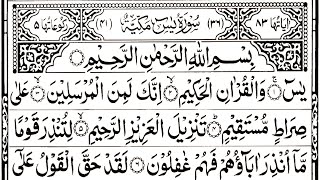 اٰیاتُهَا ۸۳ (۳۶) سُوْرَةُ یٰسٓ مَكِّیَّةٌ (۴۱) رُكُوْعَاتُهَا ۵
بِسْمِ اللّٰهِ الرَّحْمٰنِ الرَّحِیْمِ
یٰسٓ ۞ وَالْقُرْاٰنِ الْحَكِیْمِ ۞ اِنَّكَ لَمِنَ الْمُرْسَلِیْنَ ۞ عَلٰی
صِرَاطٍ مُّسْتَقِیْمٍ ۞ تَنْزِیْلَ الْعَزِیْزِ الرَّحِیْمِ ۞ لِتُنْذِرَ قَوْمًا
مَّاۤ اُنْذِرَ اٰبَآؤُهُمْ فَهُمْ غٰفِلُوْنَ ۞ لَقَدْ حَقَّ الْقَوْلُ عَلٰۤی